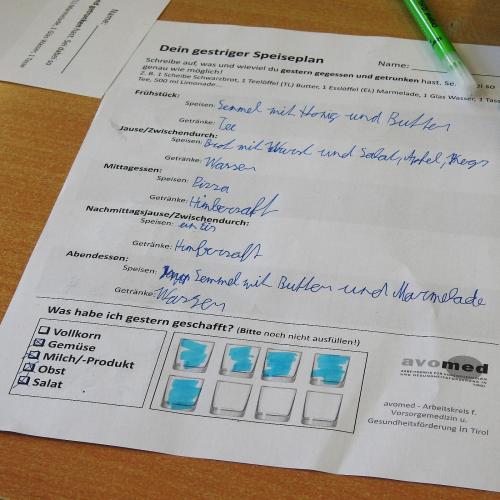 Name:
Dein gestriger Speiseplan
Name:
Schreibe auf, was und wieviel du gestern gegessen und getrunken hast. Sei so
genau wie möglich!
Z. B. 1 Scheibe Schwarzbrot, 1 Teelöffel (TL) Butter, 1 Esslöffel (EL) Marmelade, 1 Glas Wasser, 1 Tasse
Tee, 500 ml Limonade...
Frühstück:
Speisen: Semmel mit Honig und Butter
Getränke: Tee
Jause/Zwischendurch:
Speisen: Brot mit Wurst und Salat, Apfel,
Getränke: Wasser
Mittagessen:
Speisen: Pizza
Getränke: Himbersaft
Nachmittagsjause/Zwischendurch:
Speisen:
Getränke: Himbersaft
Abendessen:
Speisen: Semmel mit Butter und Marmelade
Getränke: Wasser
Was habe ich gestern geschafft? (Bitte noch nicht ausfüllen!)
Vollkorn
Gemüse
Milch/-Produkt
Obst
Salat
avomed
ARBEITSKREIS FÜR VORSORGEMEDIZIN
UND GESUNDHEITSFÖRDERUNG IN
TIROL
avomed - Arbeitskreis f.
Vorsorgemedizin u.
Gesundheitsförderung in Tirol